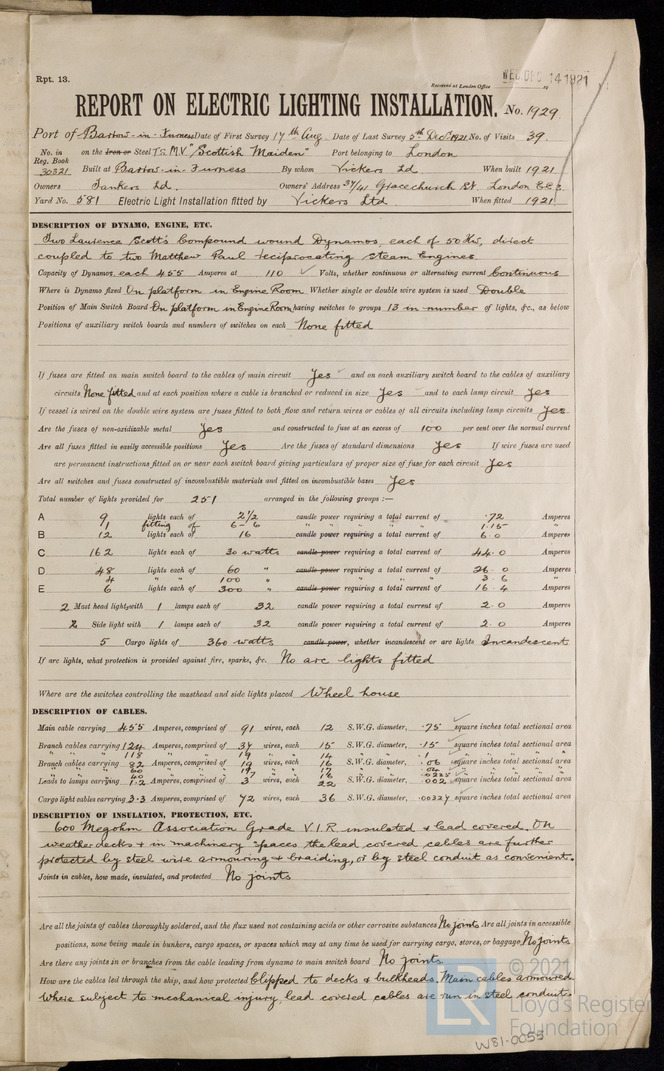 Rpt. 13.
Received at London Office WED. DEC 14 1921
REPORT ON ELECTRIC LIGHTING INSTALLATION. No. 1929
Port of Barrow-in-Furness Date of First Survey 17th Aug Date of Last Survey 5th Dec 1921 No. of Visits 39
No. in Reg. Book 30321 on the Iron or Steel T.S.M.V. "Scottish Maiden" Port belonging to London
Built at Barrow in Furness By whom Vickers Ld When built 1921
Owners Tankers Ld. Owners' Address 37/41 Gracechurch St. London E.C.3
Yard No. 581 Electric Light Installation fitted by Vickers Ltd When fitted 1921
DESCRIPTION OF DYNAMO, ENGINE, ETC.
Two Laurence Scott's Compound wound Dynamos, each of 50 Kw, direct
coupled to two Matthew Paul reciprocating steam Engines
Capacity of Dynamos each 455 Amperes at 110 Volts, whether continuous or alternating current Continuous
Where is Dynamo fixed On platform in Engine Room Whether single or double wire system is used Double
Position of Main Switch Board On platform in Engine Room having switches to groups 13 in number of lights, &c., as below
Positions of auxiliary switch boards and numbers of switches on each None fitted
If fuses are fitted on main switch board to the cables of main circuit Yes and on each auxiliary switch board to the cables of auxiliary
circuits None fitted and at each position where a cable is branched or reduced in size Yes and to each lamp circuit Yes
If vessel is wired on the double wire system are fuses fitted to both flow and return wires or cables of all circuits including lamp circuits Yes.
Are the fuses of non-oxidizable metal Yes and constructed to fuse at an excess of 100 per cent over the normal current
Are all fuses fitted in easily accessible positions Yes Are the fuses of standard dimensions Yes If wire fuses are used
are permanent instructions fitted on or near each switch board giving particulars of proper size of fuse for each circuit Yes
Are all switches and fuses constructed of incombustible materials and fitted on incombustible bases Yes
Total number of lights provided for 251 arranged in the following groups :—
A 9 lights each of 2 1/2 candle power requiring a total current of .72 Amperes
1 fitting of 6-6 " " " " " " 1.15 "
B 12 lights each of 16 candle power requiring a total current of 6.0 Amperes
C 162 lights each of 30 watts candle power requiring a total current of 44.0 Amperes
D 48 lights each of 60 " candle power requiring a total current of 26.0 Amperes
4 " " 100 " " " " 3.6 "
E 6 lights each of 300 " candle power requiring a total current of 16.4 Amperes
2 Mast head light with 1 lamps each of 32 candle power requiring a total current of 2.0 Amperes
2 Side light with 1 lamps each of 32 candle power requiring a total current of 2.0 Amperes
5 Cargo lights of 360 watts candle power, whether incandescent or arc lights Incandescent
If arc lights, what protection is provided against fire, sparks, &c. No arc lights fitted
Where are the switches controlling the masthead and side lights placed Wheel house
DESCRIPTION OF CABLES.
Main cable carrying 455 Amperes, comprised of 91 wires, each 12 S.W.G. diameter, .75 square inches total sectional area
Branch cables carrying 124 Amperes, comprised of 37 wires, each 15 S.W.G. diameter, .15 square inches total sectional area
" " 118 " " 19 " " 14 " .1 "
Branch cables carrying 82 Amperes, comprised of 19 wires, each 16 S.W.G. diameter, .06 square inches total sectional area
Leads to lamps carrying 1.2 Amperes, comprised of 3 wires, each 22 S.W.G. diameter, .002 square inches total sectional area
Cargo light cables carrying 3.3 Amperes, comprised of 72 wires, each 36 S.W.G. diameter, .00327 square inches total sectional area
DESCRIPTION OF INSULATION, PROTECTION, ETC.
600 Megohm Association Grade V.I.R. insulated & lead covered. On
weather decks & in machinery spaces the lead covered cables are further
protected by steel wire armouring & braiding, or by steel conduit as convenient.
Joints in cables, how made, insulated, and protected No joints
Are all the joints of cables thoroughly soldered, and the flux used not containing acids or other corrosive substances No joints Are all joints in accessible
positions, none being made in bunkers, cargo spaces, or spaces which may at any time be used for carrying cargo, stores, or baggage No joints
Are there any joints in or branches from the cable leading from dynamo to main switch board No joints
How are the cables led through the ship, and how protected Clipped to decks & bulkheads. Main cables armoured
Where subject to mechanical injury, lead covered cables are run in steel conduit.
© 2021
Lloyd's Register
Foundation
W81-0055